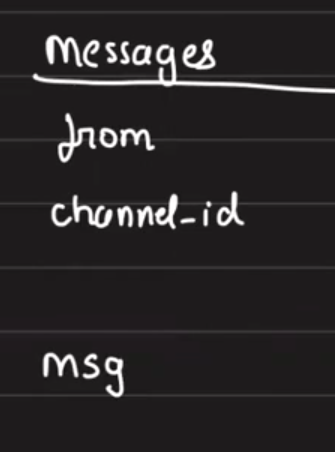 Messages
from
channel-id
msg